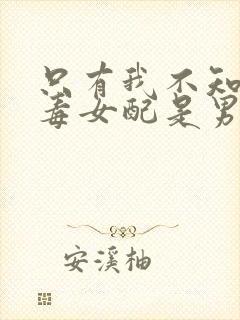 只有我不知
毒女配是男
安溪柚